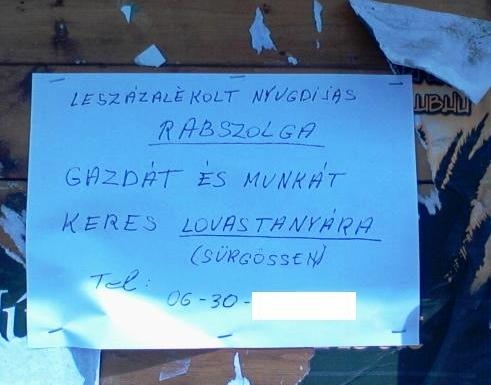 LESZÁZALÉKOLT NYUGDÍJAS
RABSZOLGA
GAZDÁT ÉS MUNKÁT
KERES LOVASTANYÁRA
(SÜRGÖSSEN)
Tel:
06-30-